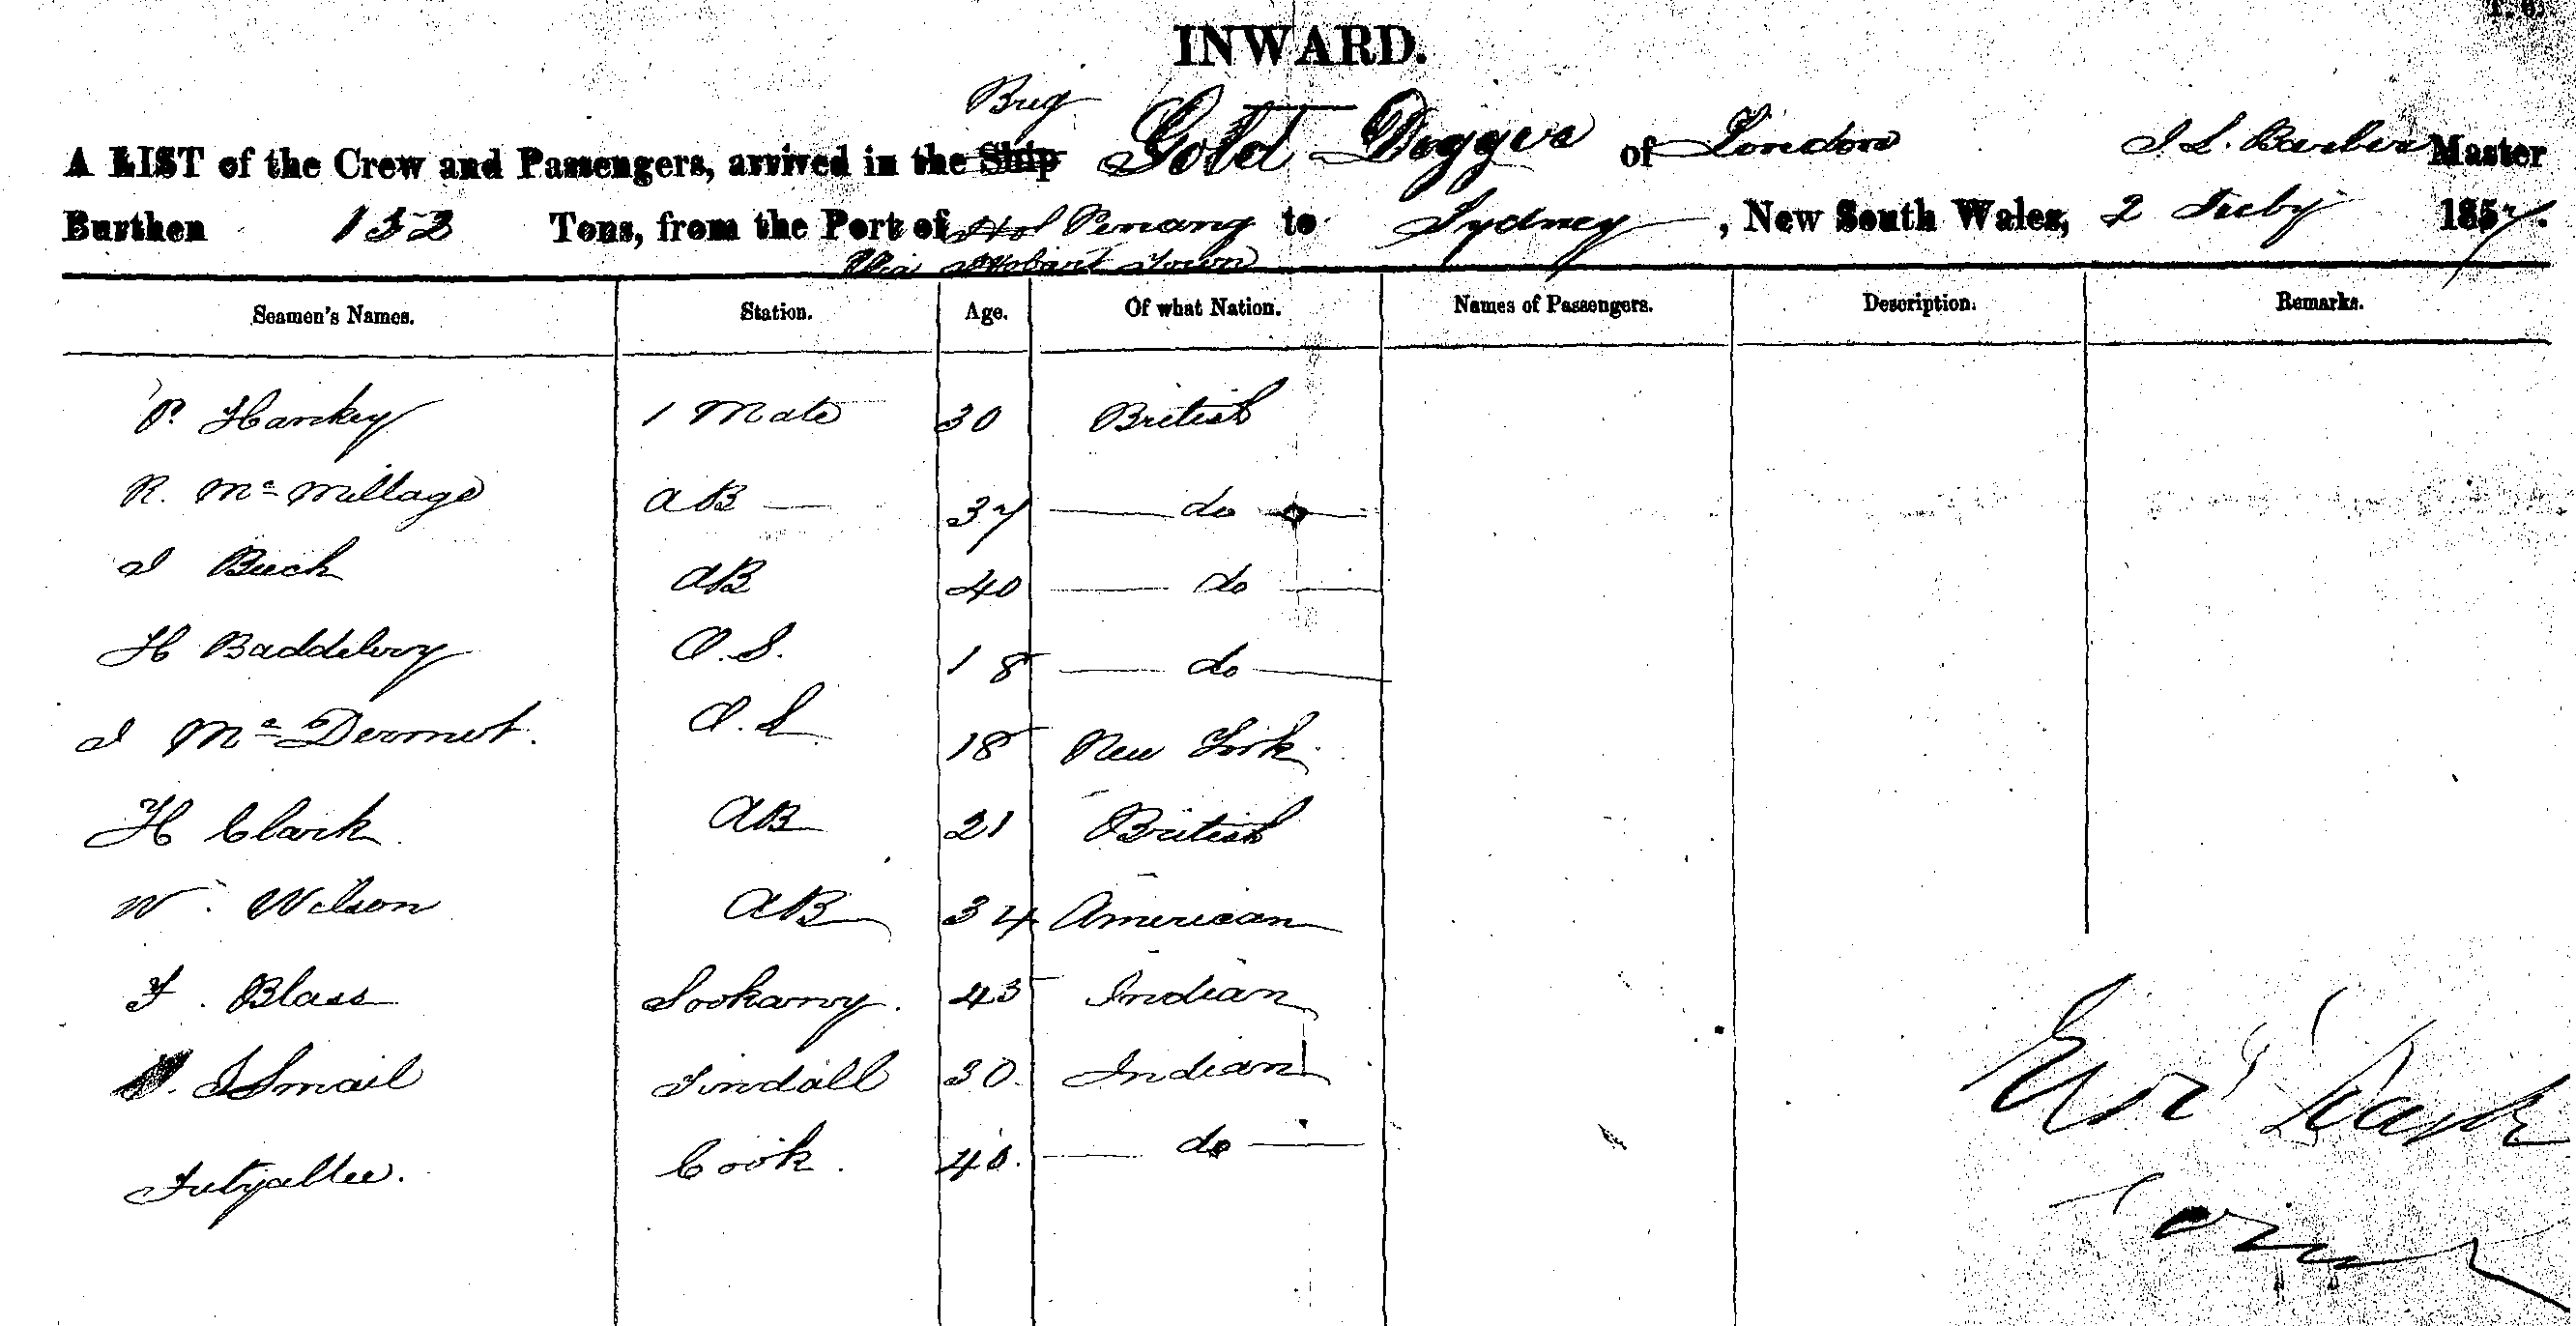 INWARD.
Brig
A LIST of the Crew and Passengers, arrived in the Ship Gold Digger of London J L. Barber Master
Burthen 132 Tons, from the Port of Hob Penang to Sydney, New South Wales, 2 July 1857.
Via Hobart Town
Seamen's Names. Station. Age. Of what Nation. Names of Passengers. Description. Remarks.
P. Hankey 1 Mate 30 British
R. Mc Millage AB 37 do
J Buch AB 40 do
H Baddeley O.S. 18 do
J Mc Dermot. O.S. 18 New York.
H Clark AB 21 British
W. Wilson AB 34 American
F. Blass Sookanny. 45 Indian
Ismail Tindall 30. Indian
Futyallee. Cook. 40. do